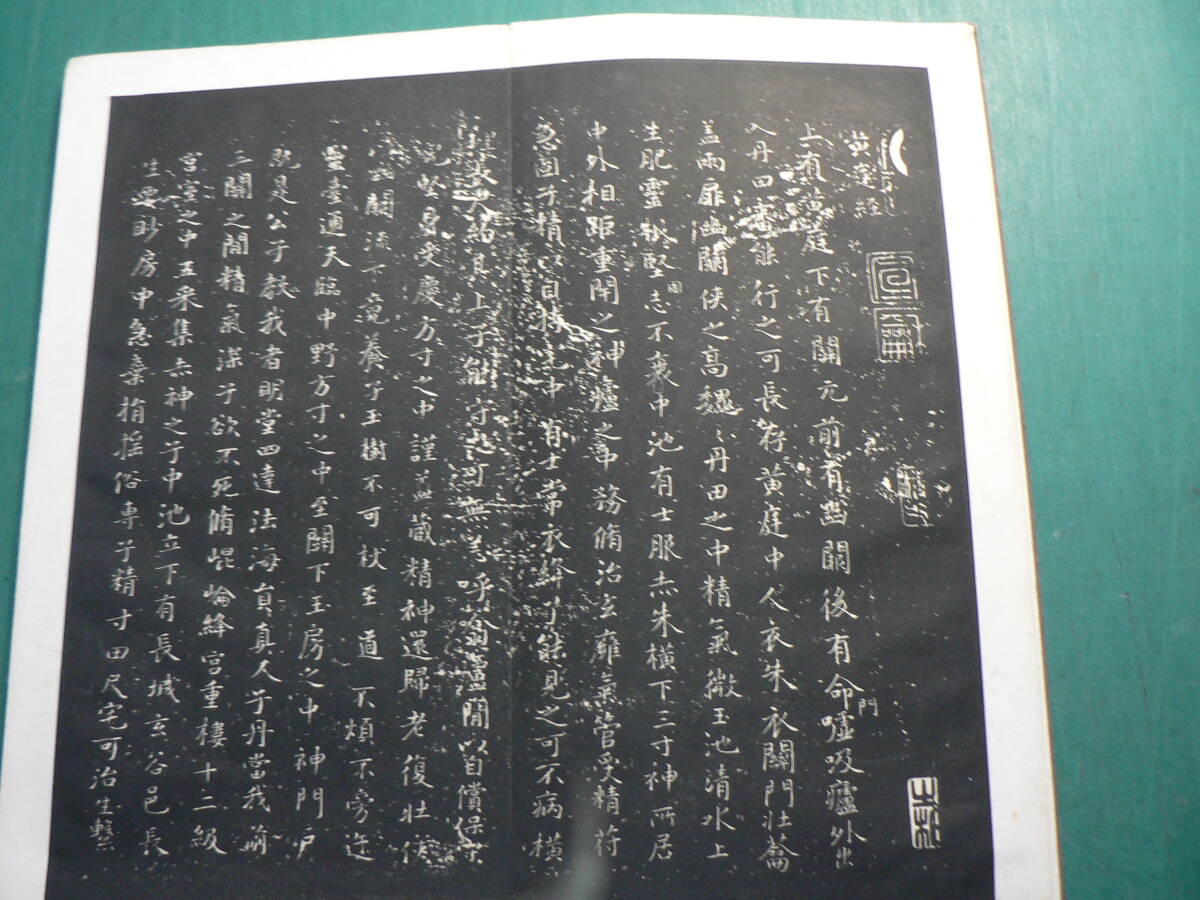 黄庭經
上有黄庭下有關元前有幽闕後有命門噓吸廬外出
入丹田審能行之可長存黄庭中人衣朱衣關門壯蘥
盖兩扉幽闕俠之高魏魏丹田之中精氣微玉池清水上
生肥靈根堅固志不衰中池有士服赤朱横下三寸神所居
中外相距重閉之神廬之中務脩治玄癰氣管受精符
急固子精以自持宅中有士常衣絳子能見之可不病横
長尺約其上子能守之可無恙呼翕廬間以自償保守
完堅身受慶方寸之中謹盖藏精神還歸老復壯俠
以幽闕流下竟養子玉樹不可杖至道不煩不旁迕
靈臺通天臨中野方寸之中至關下玉房之中神門户
既是公子教我者明堂四達法海員真人子丹當我前
三關之間精氣深子欲不死脩崐崙絳宫重樓十二級
宫室之中五采集赤神之子中池立下有長城玄谷邑長
生要眇房中急棄捐摇俗專子精寸田尺宅可治生繫